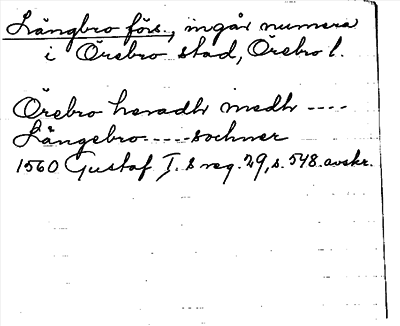 Längbro förs., ingår numera
i Örebro stad, Örebro l.
Örebro heradh medh ----
Långebro ---- sochner
1560 Gustaf I. s reg. 29, s. 548. avskr.